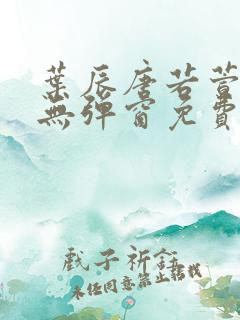 葉辰唐若萱
無彈窗免費
戲子祈話
未经同意禁止转载